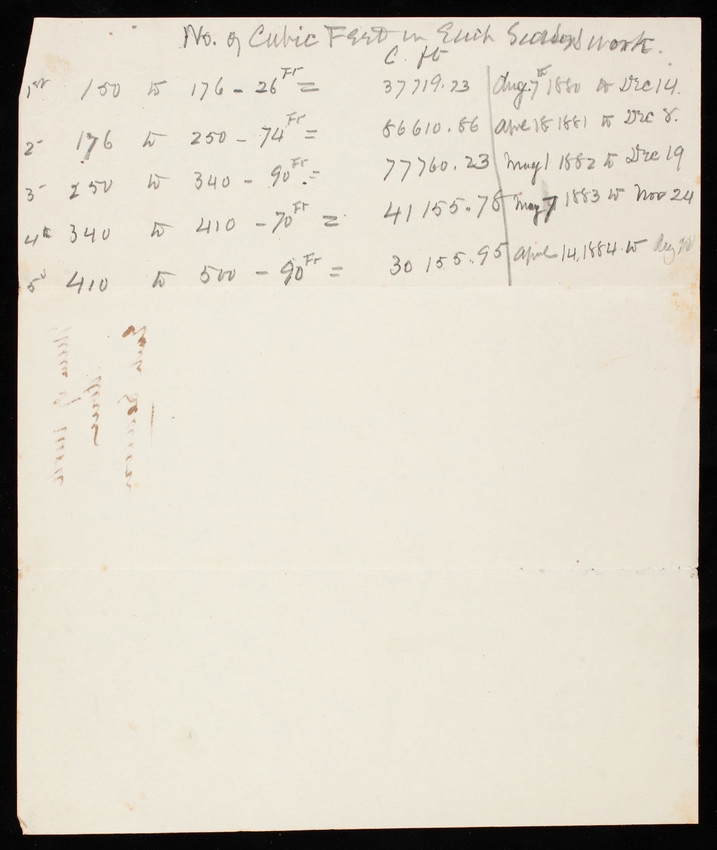 No. of Cubic Feet in Each Season's work.
C. ft
1st 150 to 176 - 26 Ft = 37719.23 Aug. 7th 1880 to Dec 14.
2d 176 to 250 - 74 Ft = 86610.86 April 18 1881 to Dec 8.
3d 250 to 340 - 90 Ft = 77760.23 May 1 1882 to Dec 19
4th 340 to 410 - 70 Ft = 41155.78 May 7 1883 to Nov 24
5th 410 to 500 - 90 Ft = 30155.95 April 14, 1884 to